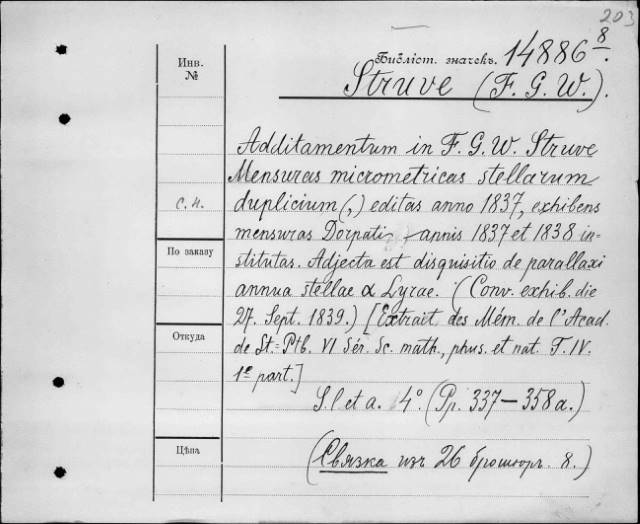 203
Инв.
№
Библіот. значекъ. 14886 8.
Struve (F. G. W.).
Additamentum in F. G. W. Struve
Mensuras micrometricas stellarum
с. н.
duplicium (,) editas anno 1837, exhibens
mensuras Dorpati annis 1837 et 1838 in-
По заказу
stitutas. Adjecta est disquisitio de parallaxi
annua stellae α Lyrae. (Conv. exhib. die
27. Sept. 1839.) [Extrait des Mém. de l'Acad.
Откуда
de St.-Ptb. VI Sér. Sc. math., phys. et nat. T. IV.
1e part.]
S. l et a. 4°. (Pp. 337—358a.)
Цѣна
(Связка изъ 26 брошюръ. 8.)